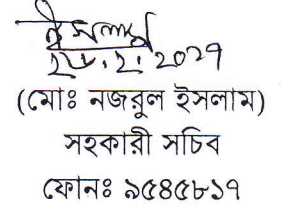 ২৮.২.২০১৭
(মোঃ নজরুল ইসলাম)
সহকারী সচিব
ফোনঃ ৯৫৪৫৮১৭